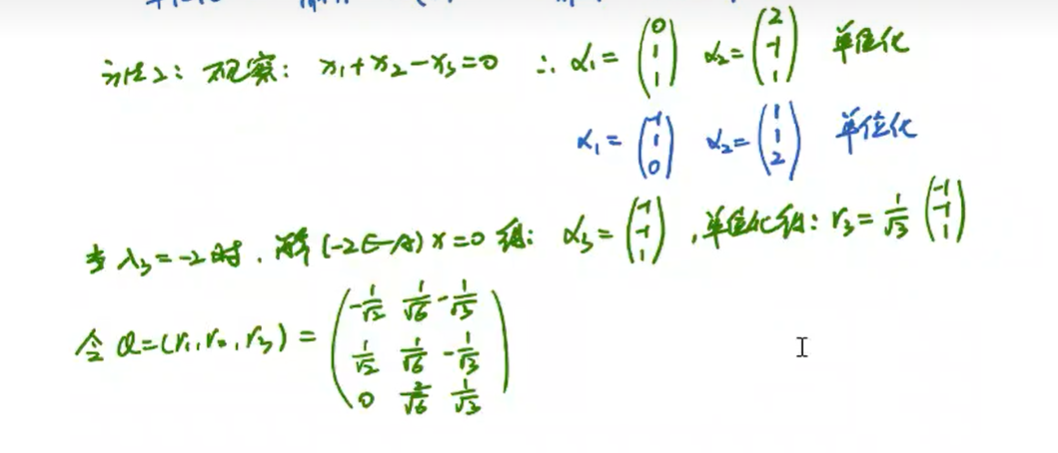 方法2：观察：x₁+x₂-x₃=0 ∴ α₁=(0 1 1) α₂=(2 -1 1) 单位化
α₁=(-1 1 0) α₂=(1 1 2) 单位化
当λ₃=-2时，解(-2E-A)x=0得：α₃=(-1 -1 1)，单位化得：r₃=1/√3 (-1 -1 1)
令Q=(r₁,r₂,r₃)=(-1/√2 1/√6 -1/√3
1/√2 1/√6 -1/√3
0 2/√6 1/√3)